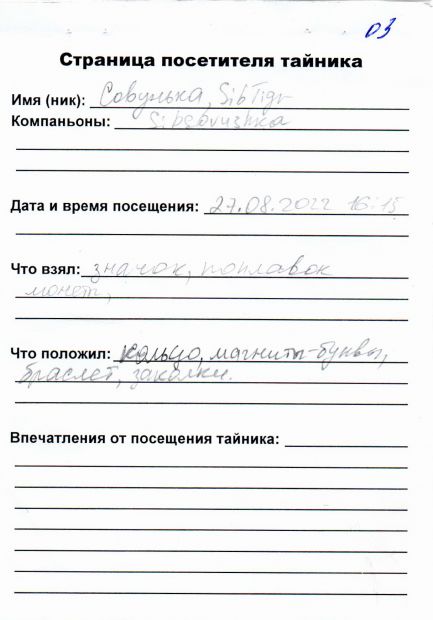 03
Страница посетителя тайника
Имя (ник): Совулька, SibTigr
Компаньоны: Sibsovushka
Дата и время посещения: 27.08.2022 16:15
Что взял: значок, поплавок
монет,
Что положил: кольцо, магниты-буквы,
браслет, заколки.
Впечатления от посещения тайника: